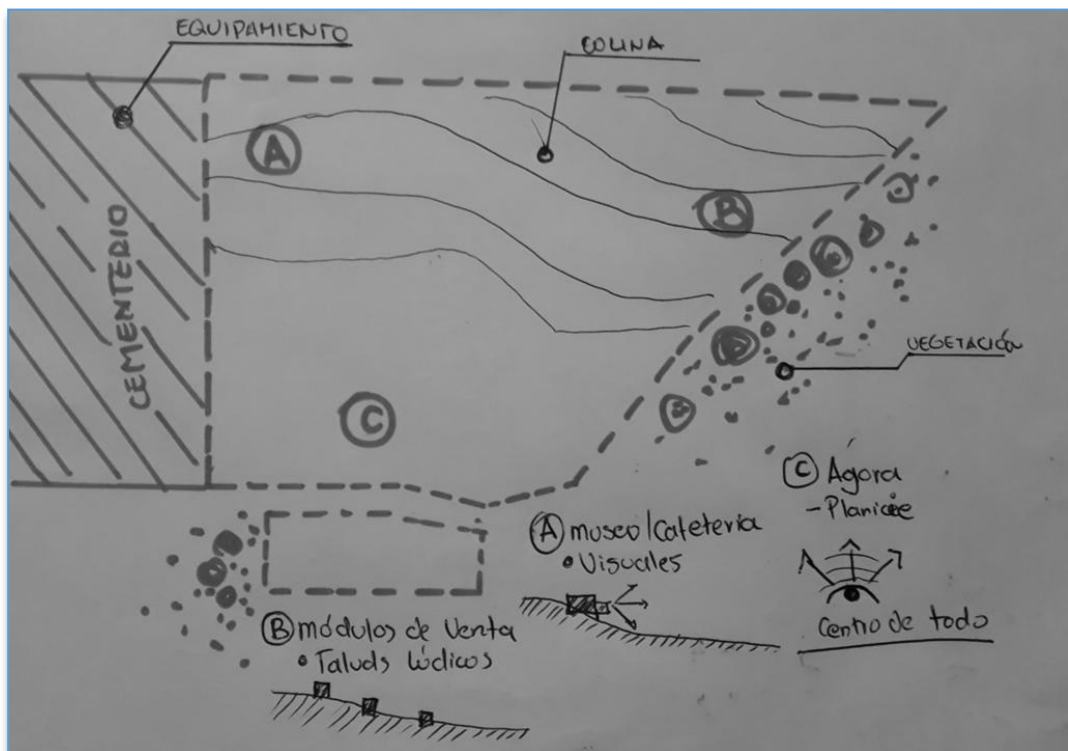 EQUIPAMIENTO
COLINA
A
B
CEMENTERIO
VEGETACIÓN
C
C Ágora
- Planicie
Centro de todo
A museo/Cafetería
• Visuales
B módulos de Venta
• Taluds lúdicos